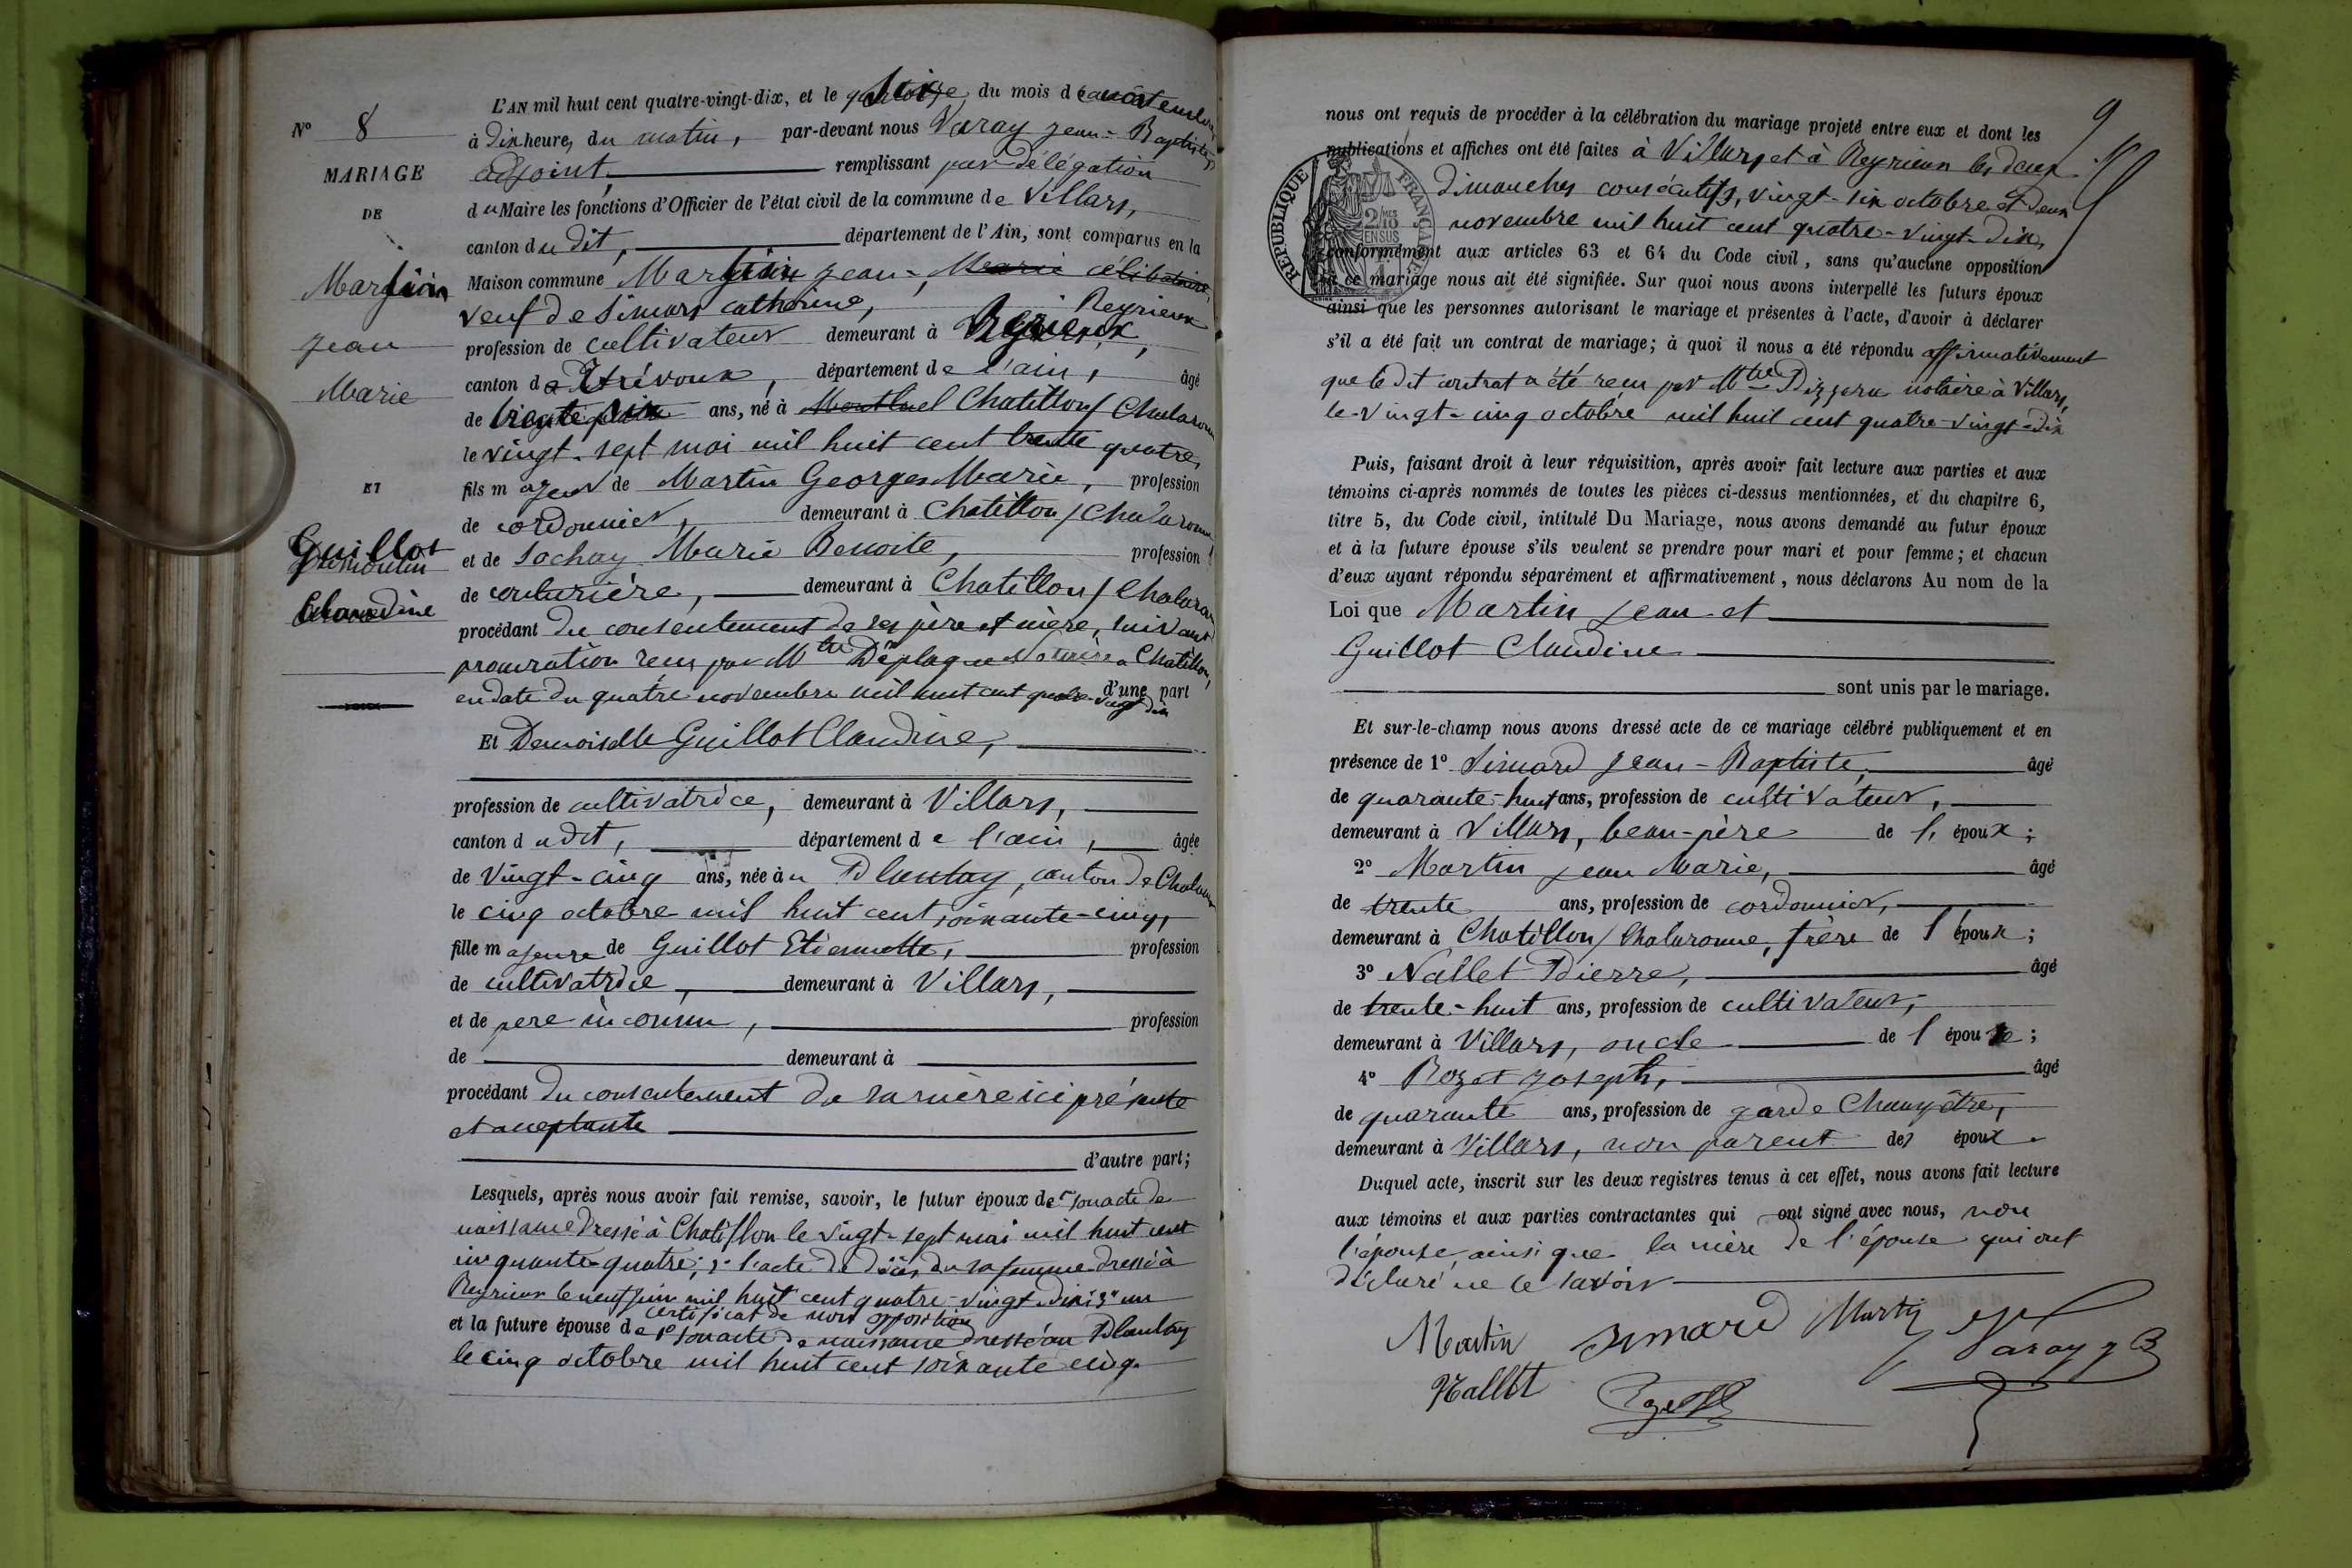 N° 8
MARIAGE
DE
Martin
Jean
Marie
ET
Guillot
Claudine
L'AN mil huit cent quatre-vingt-dix, et le six du mois de
à dix heures du matin, par-devant nous Varay Jean-Baptiste,
adjoint, remplissant par délégation
du Maire les fonctions d'Officier de l'état civil de la commune de Villars,
canton du dit, département de l'Ain, sont comparus en la
Maison commune Martin Jean, Marie célibataire,
veuf de Simard Catherine, Reyrieux
profession de cultivateur demeurant à Reyrieux,
canton de Trévoux, département de l'ain, âgé
de trente six ans, né à Montluel Chatillon / Chalaronne
le vingt-sept mai mil huit cent trente quatre,
fils majeur de Martin Georges Marie, profession
de cordonnier, demeurant à Chatillon / Chalaronne
et de Sochay Marie Benoite, profession
de couturière, demeurant à Chatillon / Chalaronne
procédant du consentement de ses père et mère, suivant
procuration reçue par Mtre Déplagne Notaire à Chatillon,
en date du quatre novembre mil huit cent quatre-vingt dix d'une part
Et Demoiselle Guillot Claudine,
profession de cultivatrice, demeurant à Villars,
canton dudit, département de l'ain, âgée
de vingt-cinq ans, née au Plantay, canton de Chalamont
le cinq octobre mil huit cent soixante-cinq,
fille majeure de Guillot Etiennette, profession
de cultivatrice, demeurant à Villars,
et de père inconnu, profession
de demeurant à
procédant du consentement de sa mère ici présente
et acceptante
d'autre part;
Lesquels, après nous avoir fait remise, savoir, le futur époux de 1° son acte de
naissance dressé à Chatillon le vingt-sept mai mil huit cent
cinquante-quatre; 2° l'acte de décès de sa femme dressé à
Reyrieux le neuf juin mil huit cent quatre-vingt-dix; 3° un
certificat de non opposition
et la future épouse de 1° son acte de naissance dressé au Plantay
le cinq octobre mil huit cent soixante cinq.
9
nous ont requis de procéder à la célébration du mariage projeté entre eux et dont les
publications et affiches ont été faites à Villars et à Reyrieux les deux
dimanches consécutifs, vingt-six octobre et deux
novembre mil huit cent quatre-vingt-dix,
conformément aux articles 63 et 64 du Code civil, sans qu'aucune opposition
à ce mariage nous ait été signifiée. Sur quoi nous avons interpellé les futurs époux
ainsi que les personnes autorisant le mariage et présentes à l'acte, d'avoir à déclarer
s'il a été fait un contrat de mariage; à quoi il nous a été répondu affirmativement
que le dit contrat a été reçu par Mtre notaire à Villars,
le vingt-cinq octobre mil huit cent quatre-vingt-dix
RÉPUBLIQUE FRANÇAISE
Puis, faisant droit à leur réquisition, après avoir fait lecture aux parties et aux
témoins ci-après nommés de toutes les pièces ci-dessus mentionnées, et du chapitre 6,
titre 5, du Code civil, intitulé Du Mariage, nous avons demandé au futur époux
et à la future épouse s'ils veulent se prendre pour mari et pour femme; et chacun
d'eux ayant répondu séparément et affirmativement, nous déclarons Au nom de la
Loi que Martin Jean et
Guillot Claudine
sont unis par le mariage.
Et sur-le-champ nous avons dressé acte de ce mariage célébré publiquement et en
présence de 1° Simard Jean-Baptiste, âgé
de quarante-huit ans, profession de cultivateur,
demeurant à Villars, beau-père de l'époux;
2° Martin Jean Marie, âgé
de trente ans, profession de cordonnier,
demeurant à Chatillon / Chalaronne, frère de l'époux;
3° Nallet Pierre, âgé
de trente-huit ans, profession de cultivateur,
demeurant à Villars, oncle de l'épouse;
4° Rozet Joseph, âgé
de quarante ans, profession de garde Champêtre,
demeurant à Villars, non parent des époux.
Duquel acte, inscrit sur les deux registres tenus à cet effet, nous avons fait lecture
aux témoins et aux parties contractantes qui ont signé avec nous, non
l'épouse, ainsi que la mère de l'épouse qui ont
déclaré ne le savoir
Martin Simard Martin Varay J B
Nallet Rozet